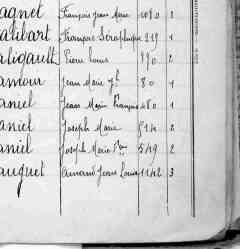 agnet François Jean Marie 1090 2
alibart François Séraphique 219 1
aligault Pierre Louis 990 2
amour Jean Marie 80 1
aniel Jean Marie François 480 1
aniel Joseph Marie 2
aniel Joseph Marie 5149 2
auguet Armand Jean Louis 1142 3